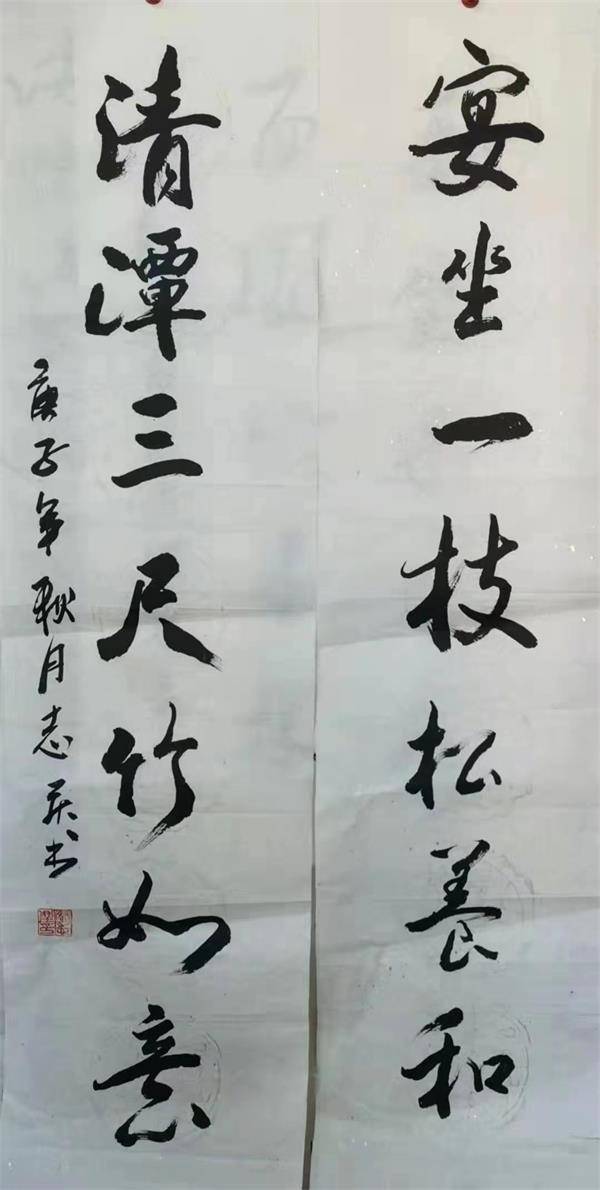 宴坐一枝松养和
清潭三尺竹如意
庚子年秋月志书